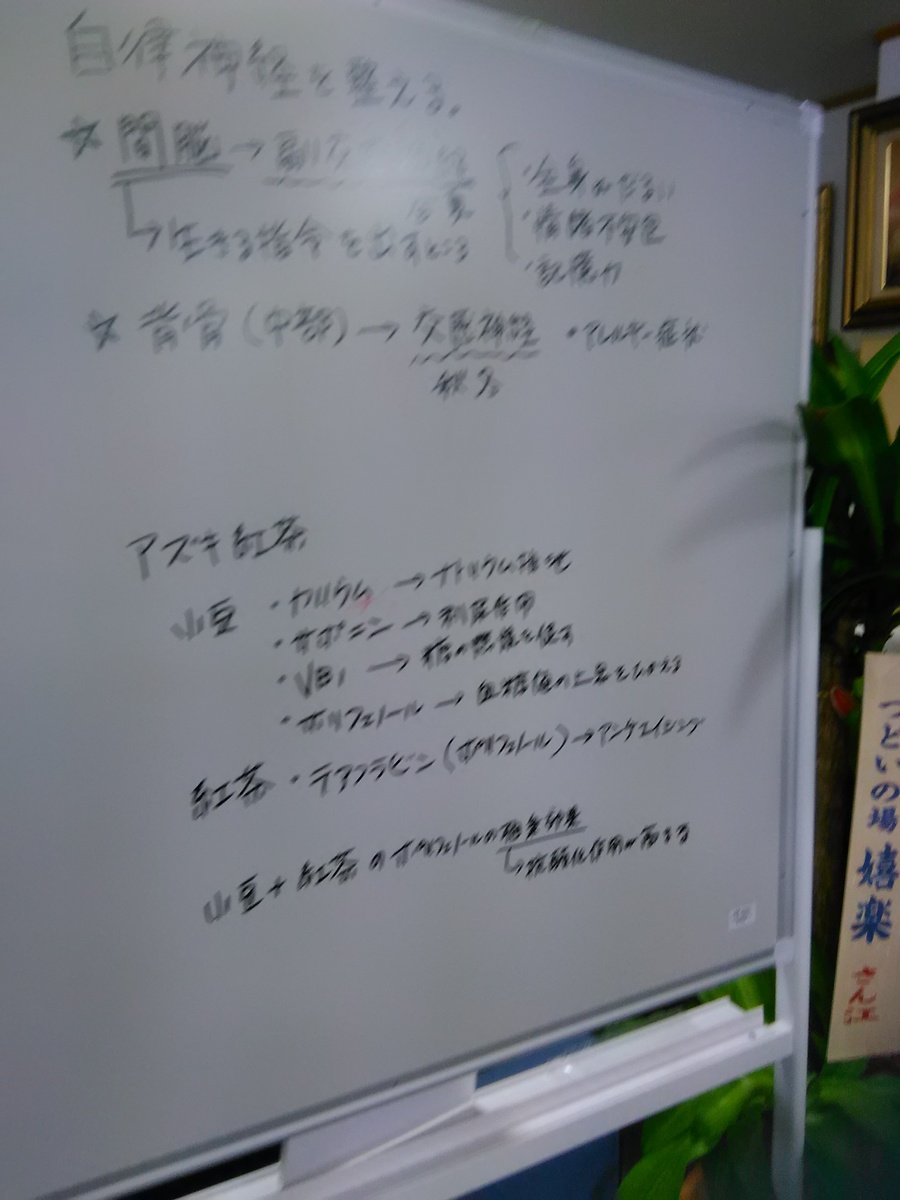 自律神経を整える。
☆ 間脳 → 副交
全身
↳ 生きる指令を出すところ
・全身がだるい
・情緒不安定
・記憶力
☆ 背骨(中部) → 交感神経 ・アレルギー症状
アズキ紅茶
小豆 ・カリウム → ナトリウム排泄
・サポニン → 利尿作用
・VB1 → 糖の代謝を促す
・ポリフェノール → 血糖値の上昇をおさえる
紅茶 ・テアフラビン(ポリフェノール) → アンチエイジング
小豆+紅茶のポリフェノールの相乗効果
↳ 抗酸化作用が高まる
つどいの場 嬉楽 さん江